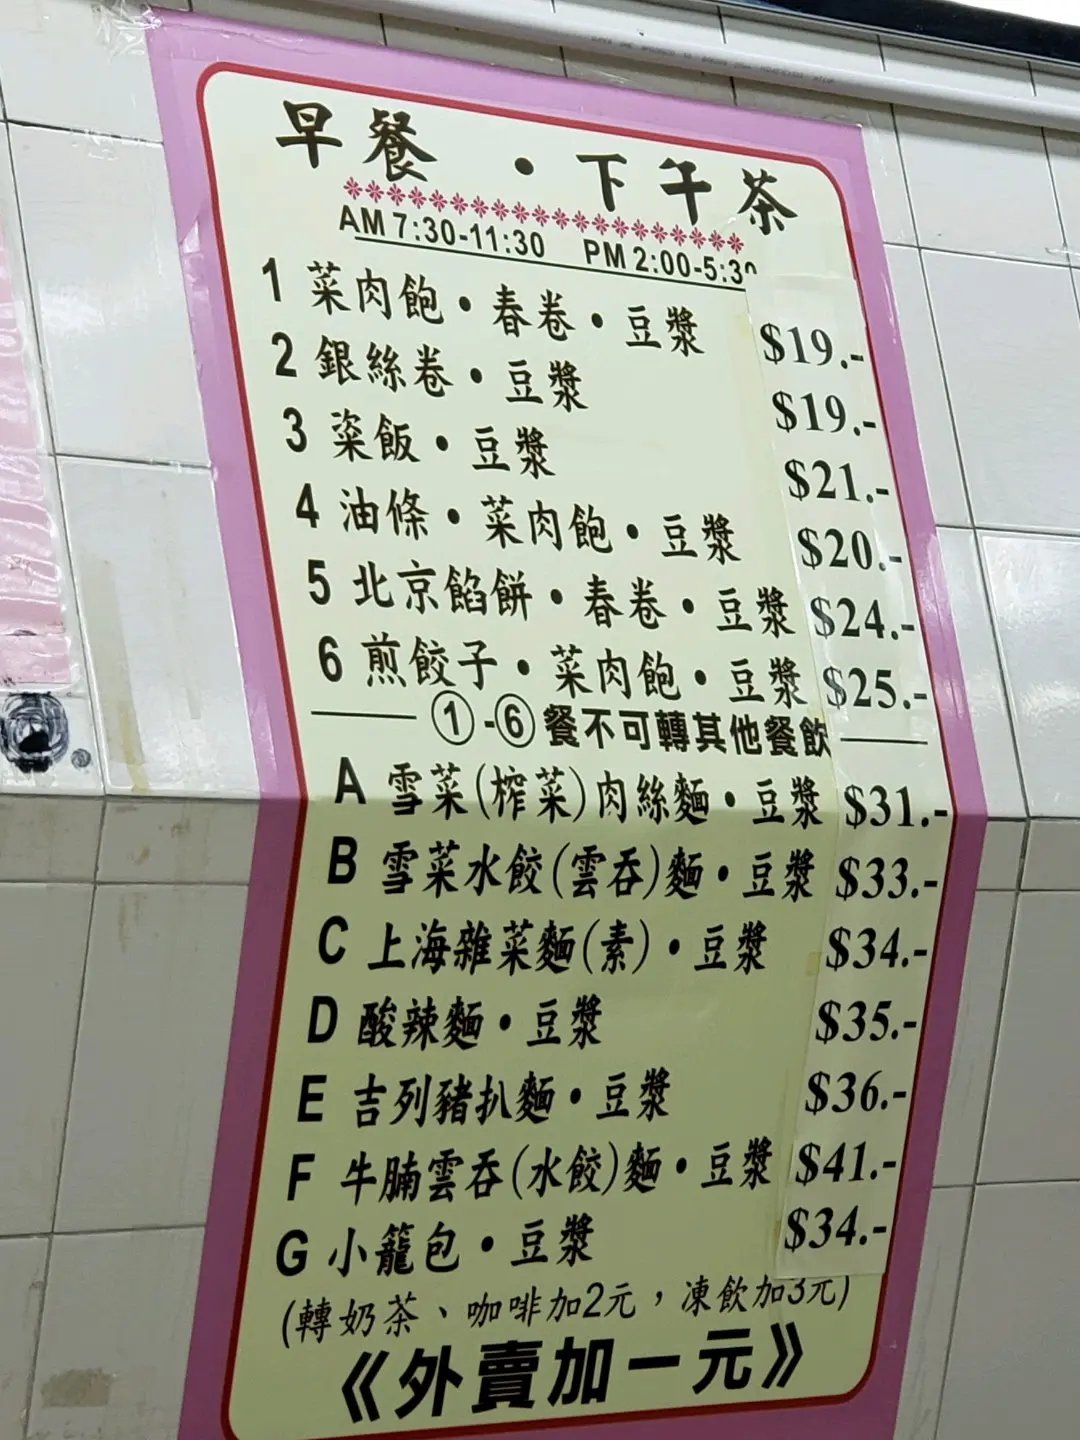 早餐・下午茶
AM 7:30-11:30 PM 2:00-5:30
1 菜肉飽・春卷・豆漿 $19.-
2 銀絲卷・豆漿 $19.-
3 粢飯・豆漿 $21.-
4 油條・菜肉飽・豆漿 $20.-
5 北京餡餅・春卷・豆漿 $24.-
6 煎餃子・菜肉飽・豆漿 $25.-
①-⑥餐不可轉其他餐飲
A 雪菜(榨菜)肉絲麵・豆漿 $31.-
B 雪菜水餃(雲吞)麵・豆漿 $33.-
C 上海雜菜麵(素)・豆漿 $34.-
D 酸辣麵・豆漿 $35.-
E 吉列豬扒麵・豆漿 $36.-
F 牛腩雲吞(水餃)麵・豆漿 $41.-
G 小籠包・豆漿 $34.-
(轉奶茶、咖啡加2元，凍飲加3元)
《外賣加一元》